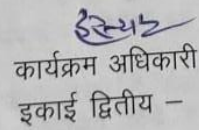 कार्यक्रम अधिकारी
इकाई द्वितीय –